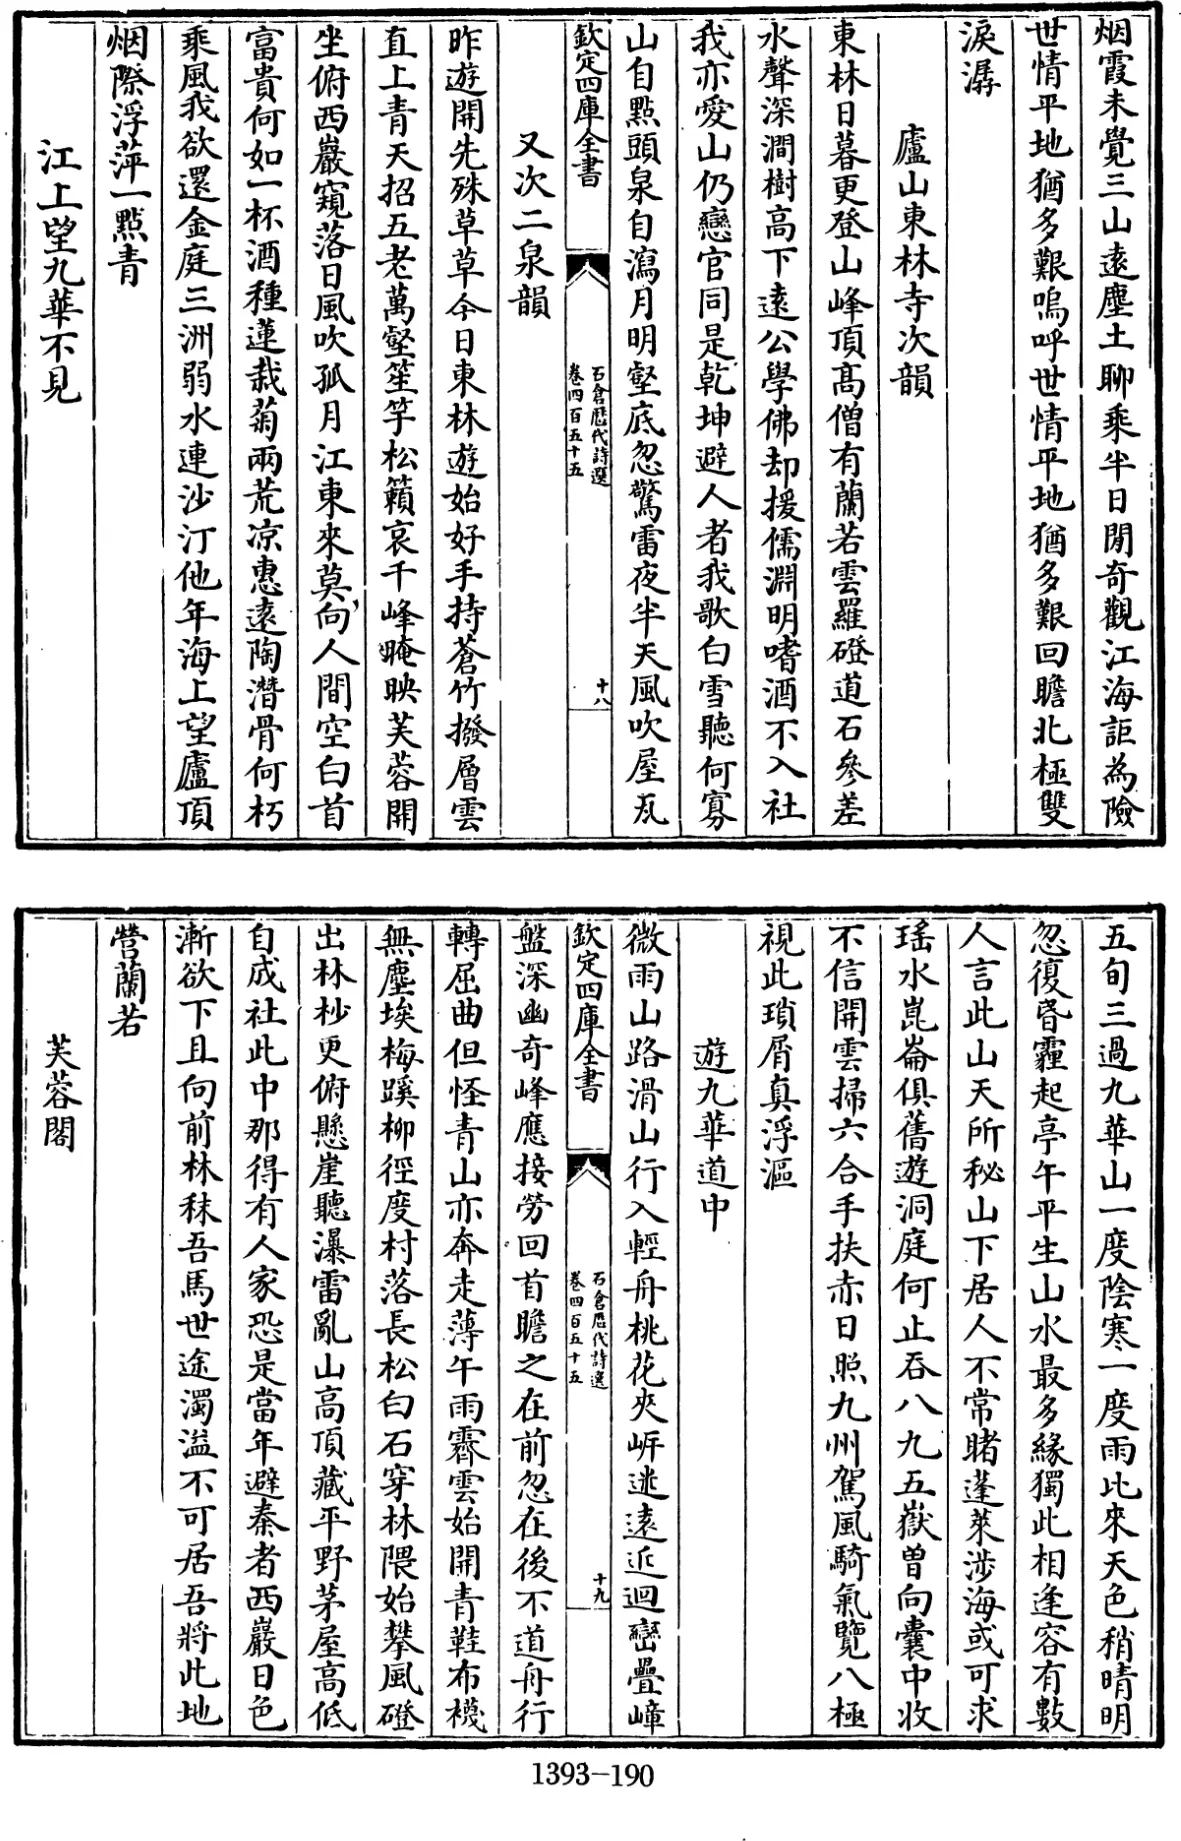 烟霞未覺三山遠塵土聊乘半日閒奇觀江海詎為險
世情平地猶多艱嗚呼世情平地猶多艱回瞻北極雙
淚潺
廬山東林寺次韻
東林日暮更登山峰頂高僧有蘭若雲羅磴道石參差
水聲深澗樹高下遠公學佛却援儒淵明嗜酒不入社
我亦愛山仍戀官同是乾坤避人者我歌白雪聽何寡
山自點頭泉自瀉月明壑底忽驚雷夜半天風吹屋瓦
欽定四庫全書
石倉歷代詩選
卷四百五十五
十八
又次二泉韻
昨遊開先殊草草今日東林遊始好手持蒼竹撥層雲
直上青天招五老萬壑笙竽松籟哀千峰晻映芙蓉開
坐俯西巖窺落日風吹孤月江東來莫向人間空白首
富貴何如一杯酒種蓮栽菊兩荒凉惠遠陶潛骨何朽
乘風我欲還金庭三洲弱水連沙汀他年海上望廬頂
烟際浮萍一點青
江上望九華不見
五旬三過九華山一度陰寒一度雨比來天色稍晴明
忽復昏霾起亭午平生山水最多緣獨此相逢容有數
人言此山天所秘山下居人不常睹蓬萊涉海或可求
瑤水崑崙俱舊遊洞庭何止吞八九五嶽曽向囊中收
不信開雲掃六合手扶赤日照九州駕風騎氣覽八極
視此瑣屑真浮漚
遊九華道中
微雨山路滑山行入輕舟桃花夾岍迷遠近迴巒疊嶂
欽定四庫全書
石倉歷代詩選
卷四百五十五
十九
盤深幽奇峰應接勞回首瞻之在前忽在後不道舟行
轉屈曲但怪青山亦奔走薄午雨霽雲始開青鞋布襪
無塵埃梅蹊柳徑度村落長松白石穿林隈始攀風磴
出林杪更俯懸崖聽瀑雷亂山高頂藏平野茅屋高低
自成社此中那得有人家恐是當年避秦者西巖日色
漸欲下且向前林秣吾馬世途濁溢不可居吾將此地
營蘭若
芙蓉閣
1393-190